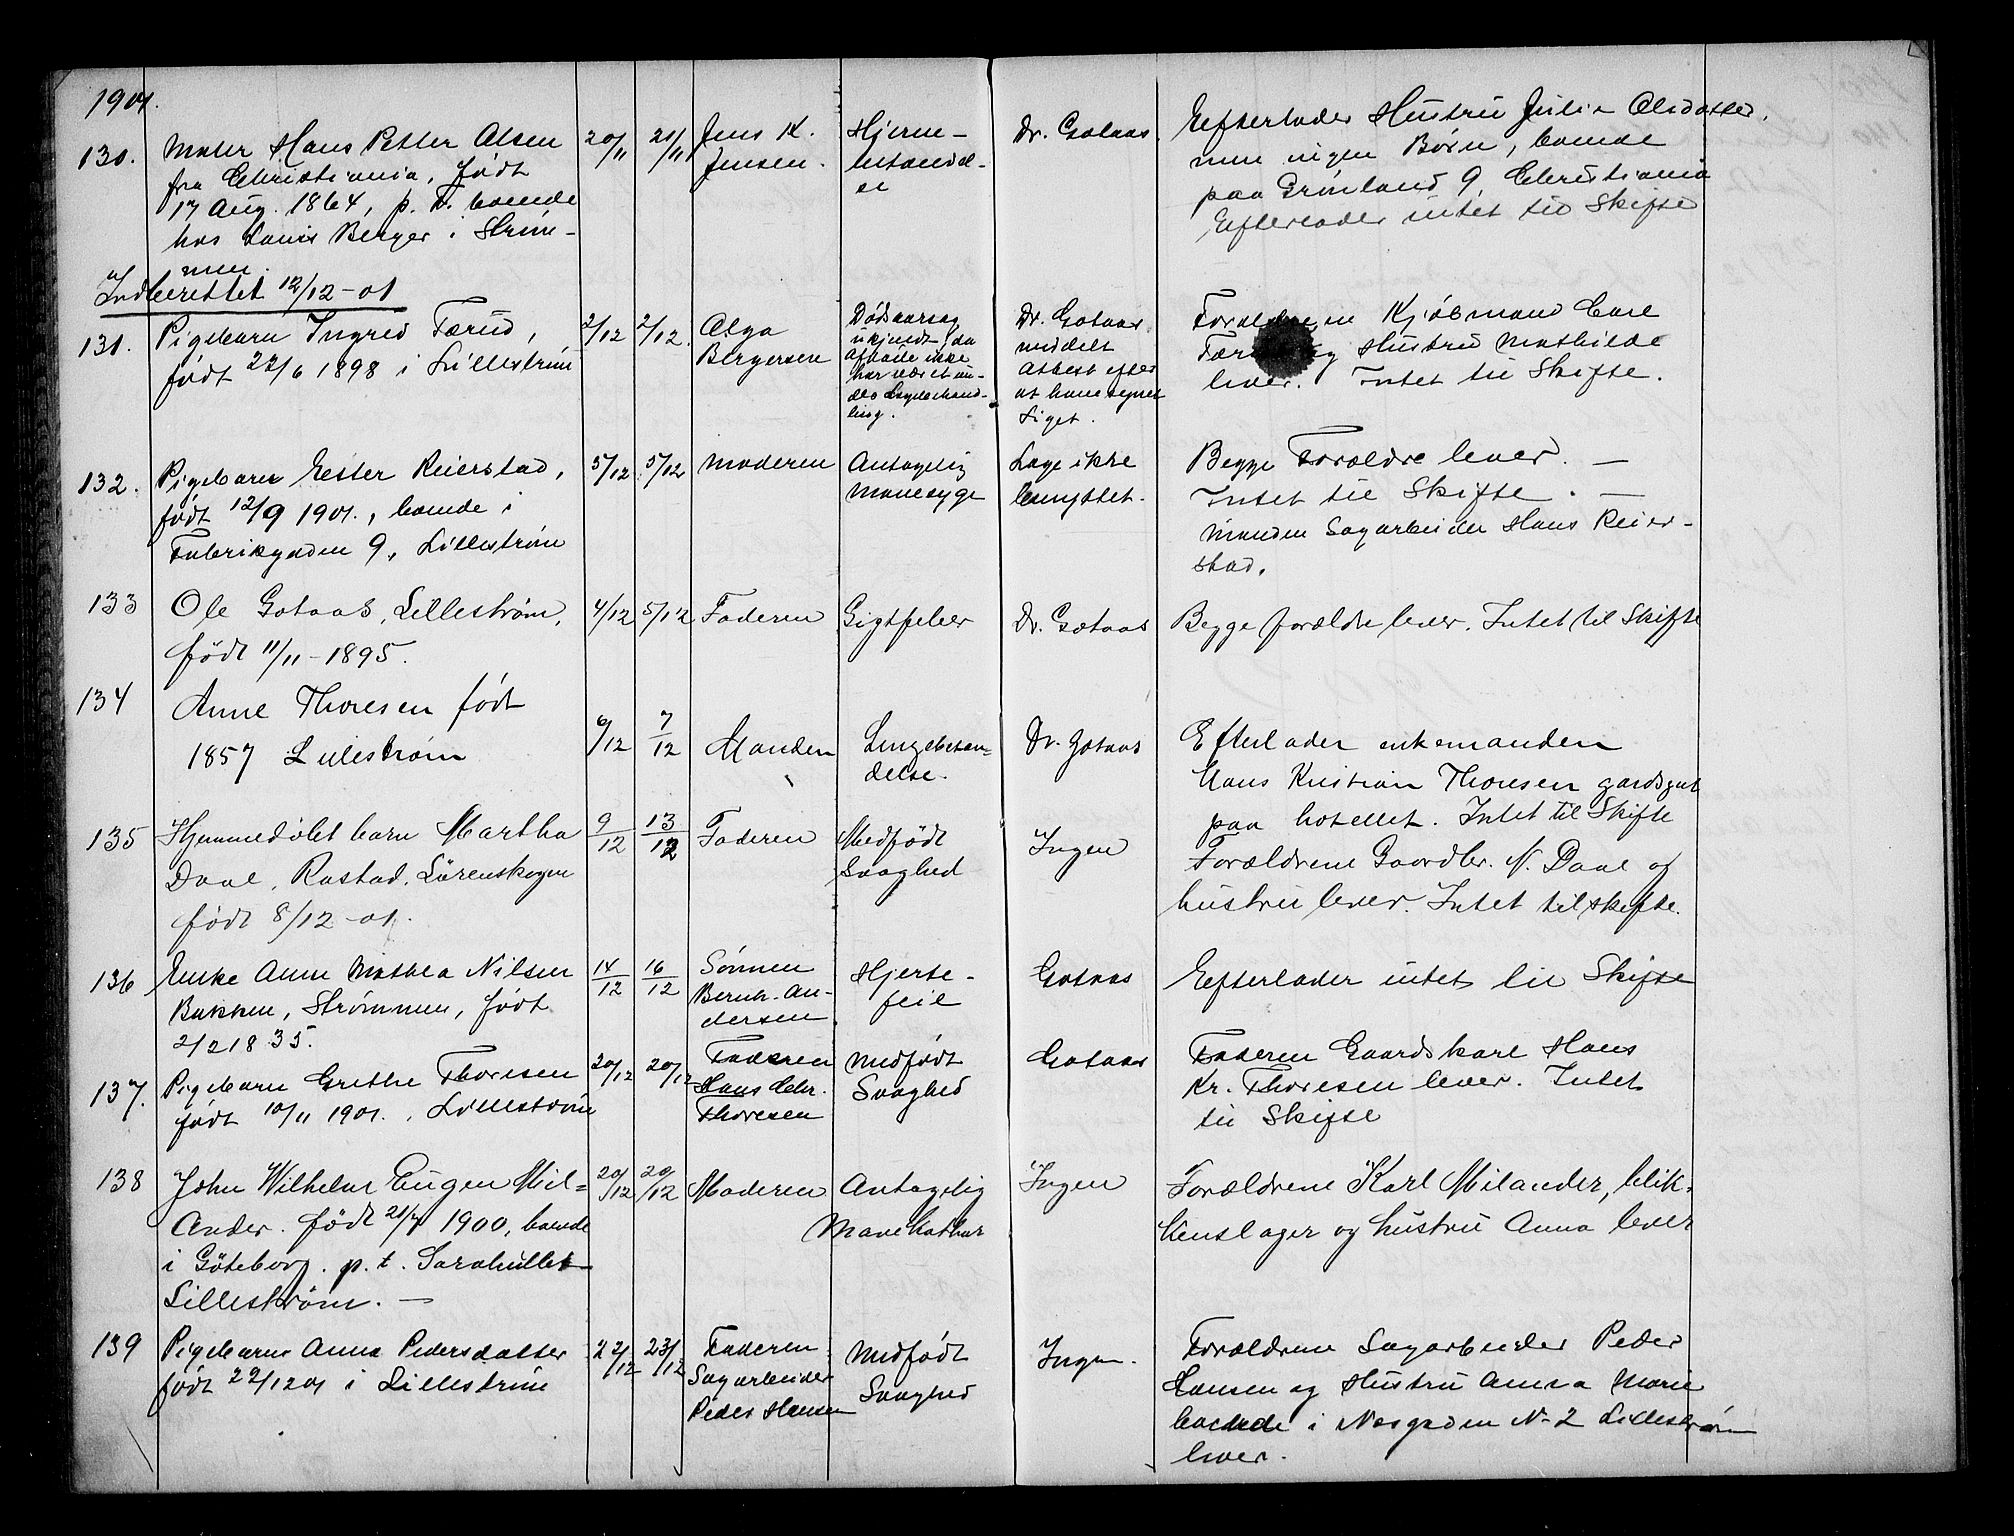 1901.
130.
Maler Hans Petter Olsen
fra Christiania, født
17 Aug. 1864, p. t. boende
hos Louis Berger i Strøm-
men.
20/11
21/11
Jens K.
Jensen.
Hjerne-
betændel-
se
Dr. Gotaas.
Efterlader Hustru Julie Olsdatter,
men ingen Børn, boende
paa Grønland 9, Christiania
Efterlader intet til Skifte
Indberettet 12/12-01
131.
Pigebarn Ingred Færud,
født 22/6 1898 i Lillestrøm
2/12
2/12.
Olga
Bergersen
Dødsaarsag
ukjendt, da
afdøde ikke
har været un-
der Lægebehand-
ling.
Dr. Gotaas
meddelt
Attest efter
at have synet
Liget.
Forældrene Kjøbmand Carl
Færud og Hustru Mathilde
lever. Intet til Skifte.
132.
Pigebarn Ester Reierstad,
født 12/9 1901., boende i
Fabrikgaden 9, Lillestrøm
5/12
5/12
Moderen
Antagelig
Mavesyge
Læge ikke
benyttet.
Begge Forældre lever. —
Intet til Skifte. —
Manden Sagarbeider Hans Reier-
stad.
133
Ole Gotaas, Lillestrøm,
født 11/11-1895.
4/12
5/12
Faderen
Gigtfeber
Dr. Gotaas
Begge forældre lever. Intet til Skifte
134
Anne Thoresen født
1857 Lillestrøm
6/12
7/12
Manden
Lungebetæn-
delse.
Dr. Gotaas
Efterlader enkemanden
Hans Kristian Thoresen gardsgut
paa hotellet. Intet til Skifte
135
Hjemmedøbt barn Martha
Daae, Rastad, Lörenskogen
født 8/12-01.
9/12
13/12
Faderen
Medfødt
Svaghed
Ingen
Forældrene Gaardbr. N. Daae og
hustru lever. Intet til skifte.
136
Enke Anne Mathea Nilsen
Bakken, Strømmen, født
2/2 1835.
14/12
16/12
Sønnen
Bernh. An-
dersen
Hjerte-
feil
Gotaas
Efterlader intet til Skifte
137.
Pigebarn Grethe Thoresen
født 10/11 1901., Lillestrøm
20/12
20/12
Faderen
Hans Chr.
Thoresen
Medfødt
Svaghed
Gotaas
Faderen Gaardskarl Hans
Kr. Thoresen lever. Intet
til Skifte
138
John Wilhelm Eugen Mil=
Ander. født 21/7 1900, boende
i Göteborg. p. t. Sarahullet
Lillestrøm. —
20/12
20/12
Moderen
Antagelig
Mavekathar
Ingen
Forældrene Karl Milander, blik-
kenslager og hustru Anna lever
139
Pigebarn Anna Pedersdatter
født 22/12 01 i Lillestrøm
22/12
23/12
Faderen
Sagarbeider
Peder Hansen
Medfødt
Svaghed
Ingen.
Forældrene Sagarbeider Peder
Hansen og Hustru Anna Marie
boende i Næsgaden N- 2 Lillestrøm
lever.